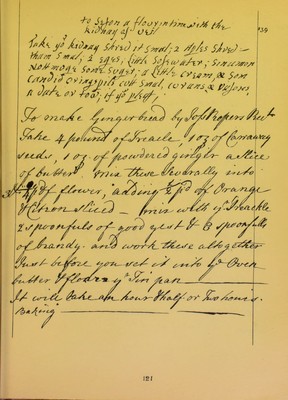 to Season a flowrintim with the
kidney of veil
Take ye kidney shred it smal; 2 aples shred
tham smal; 2 eges, little Roſewater; sinaman
nottmage some suger; a little cream, & som
candid oringpils cutt smal, corans & resons,
a date or tow; if ye pleſs.
139
To make Gingerbread by Recet
Take 4 pound of Treacle, 1 oz of Carraway
seeds, 1 oz of powdered ginger a slice
of butter mix these Severally into
of flower, adding pd of Orange
& Citron sliced – mix with ye Treackle
2 spoonfuls of good yest & 3 spoonfulls
of brandy and work these altogether
Just before you set it into ye Oven
butter & flour ye Tin pan
It will take an hour & half or Two hours.
Baking
121